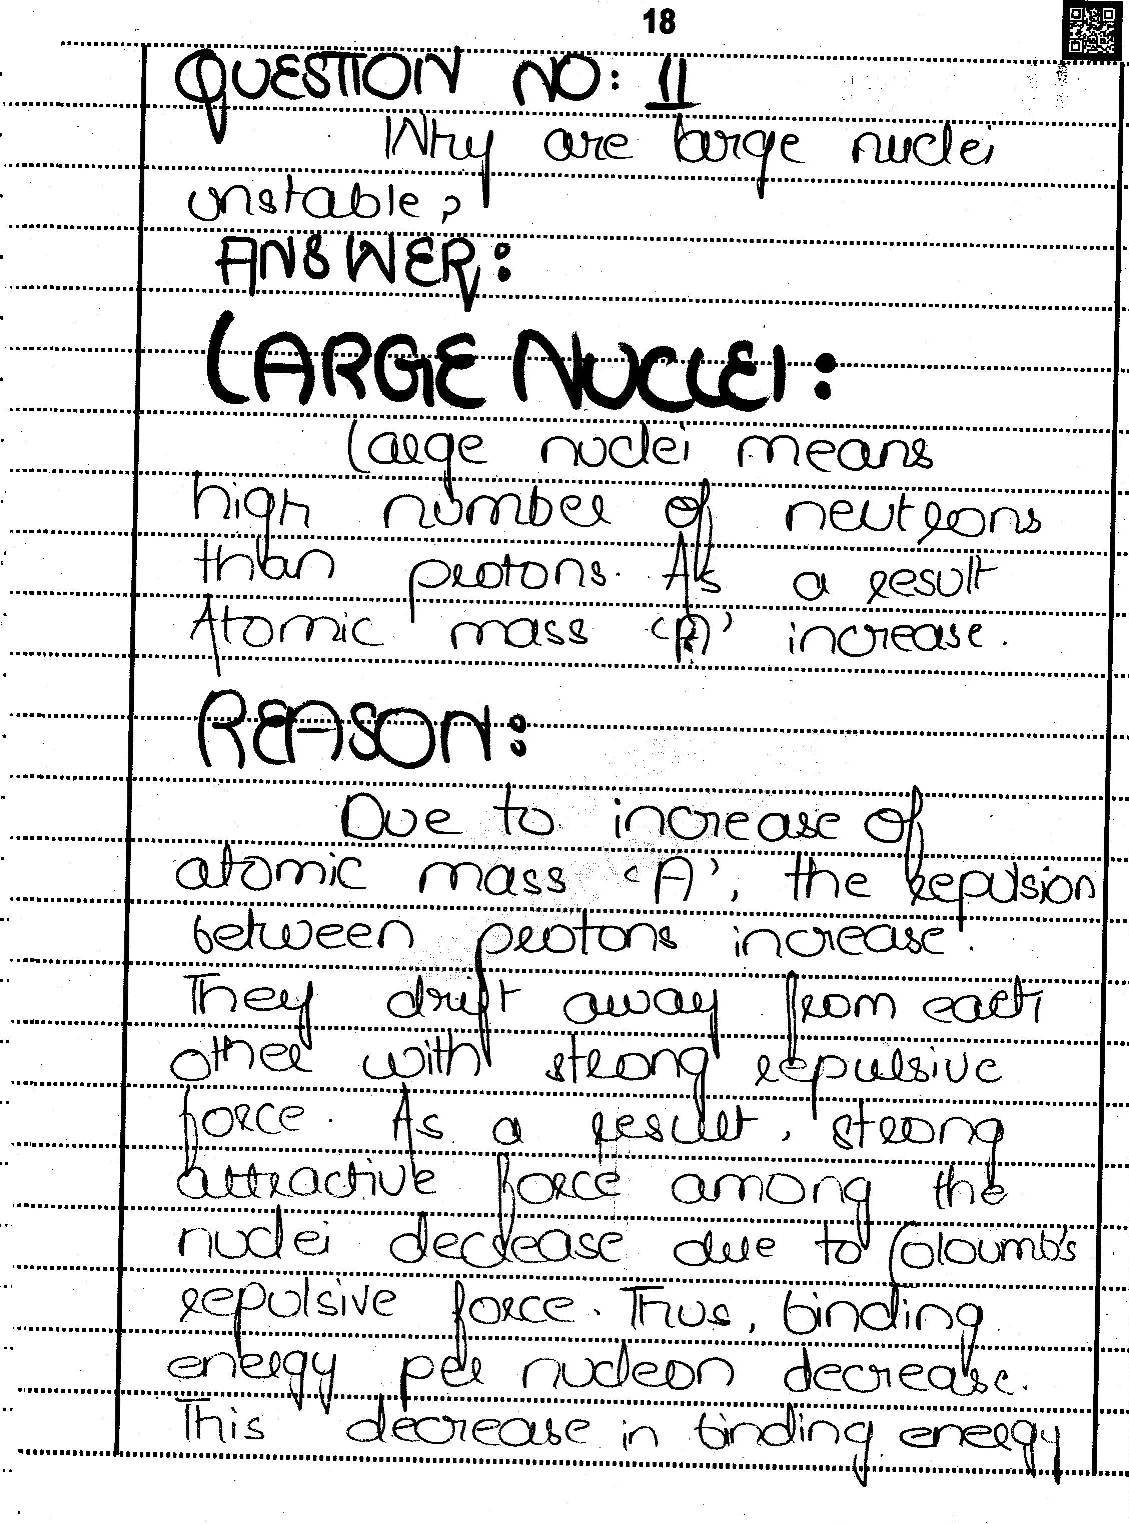 18
QUESTION NO: 11
Why are large nuclei
unstable?
ANSWER:
LARGE NUCLEI:
Large nuclei means
high number of neutrons
than protons. As a result
Atomic mass 'A' increase.
REASON:
Due to increase of
atomic mass 'A', the repulsion
between protons increase.
They drift away from each
other with strong repulsive
force. As a result, strong
attractive force among the
nuclei decrease due to Coloumb's
repulsive force. Thus, binding
energy per nucleon decrease.
This decrease in binding energy